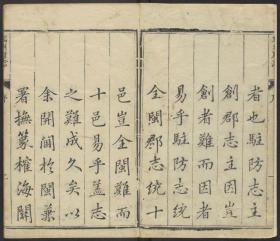 者也駐防志
創郡志主因豈
創者難而因者
易乎駐防志統
全閩郡志統十
邑豈全閩難而
十邑易乎蓋志
之難成久矣以
余開閫於閩兼
署撫篆榷海關